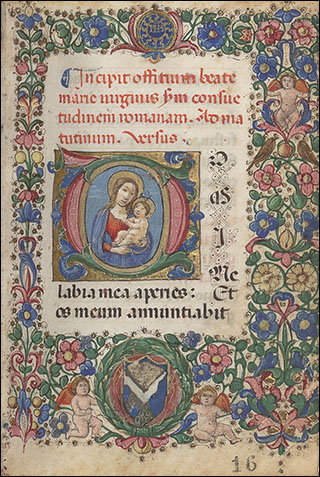 Incipit offitium beate
marie uirginis ẜm consue
tudinem romanam. Ad ma
tutinum. Versus.
DO
M
I
Ne
labia mea aperies: Et
os meum annuntiabit
16